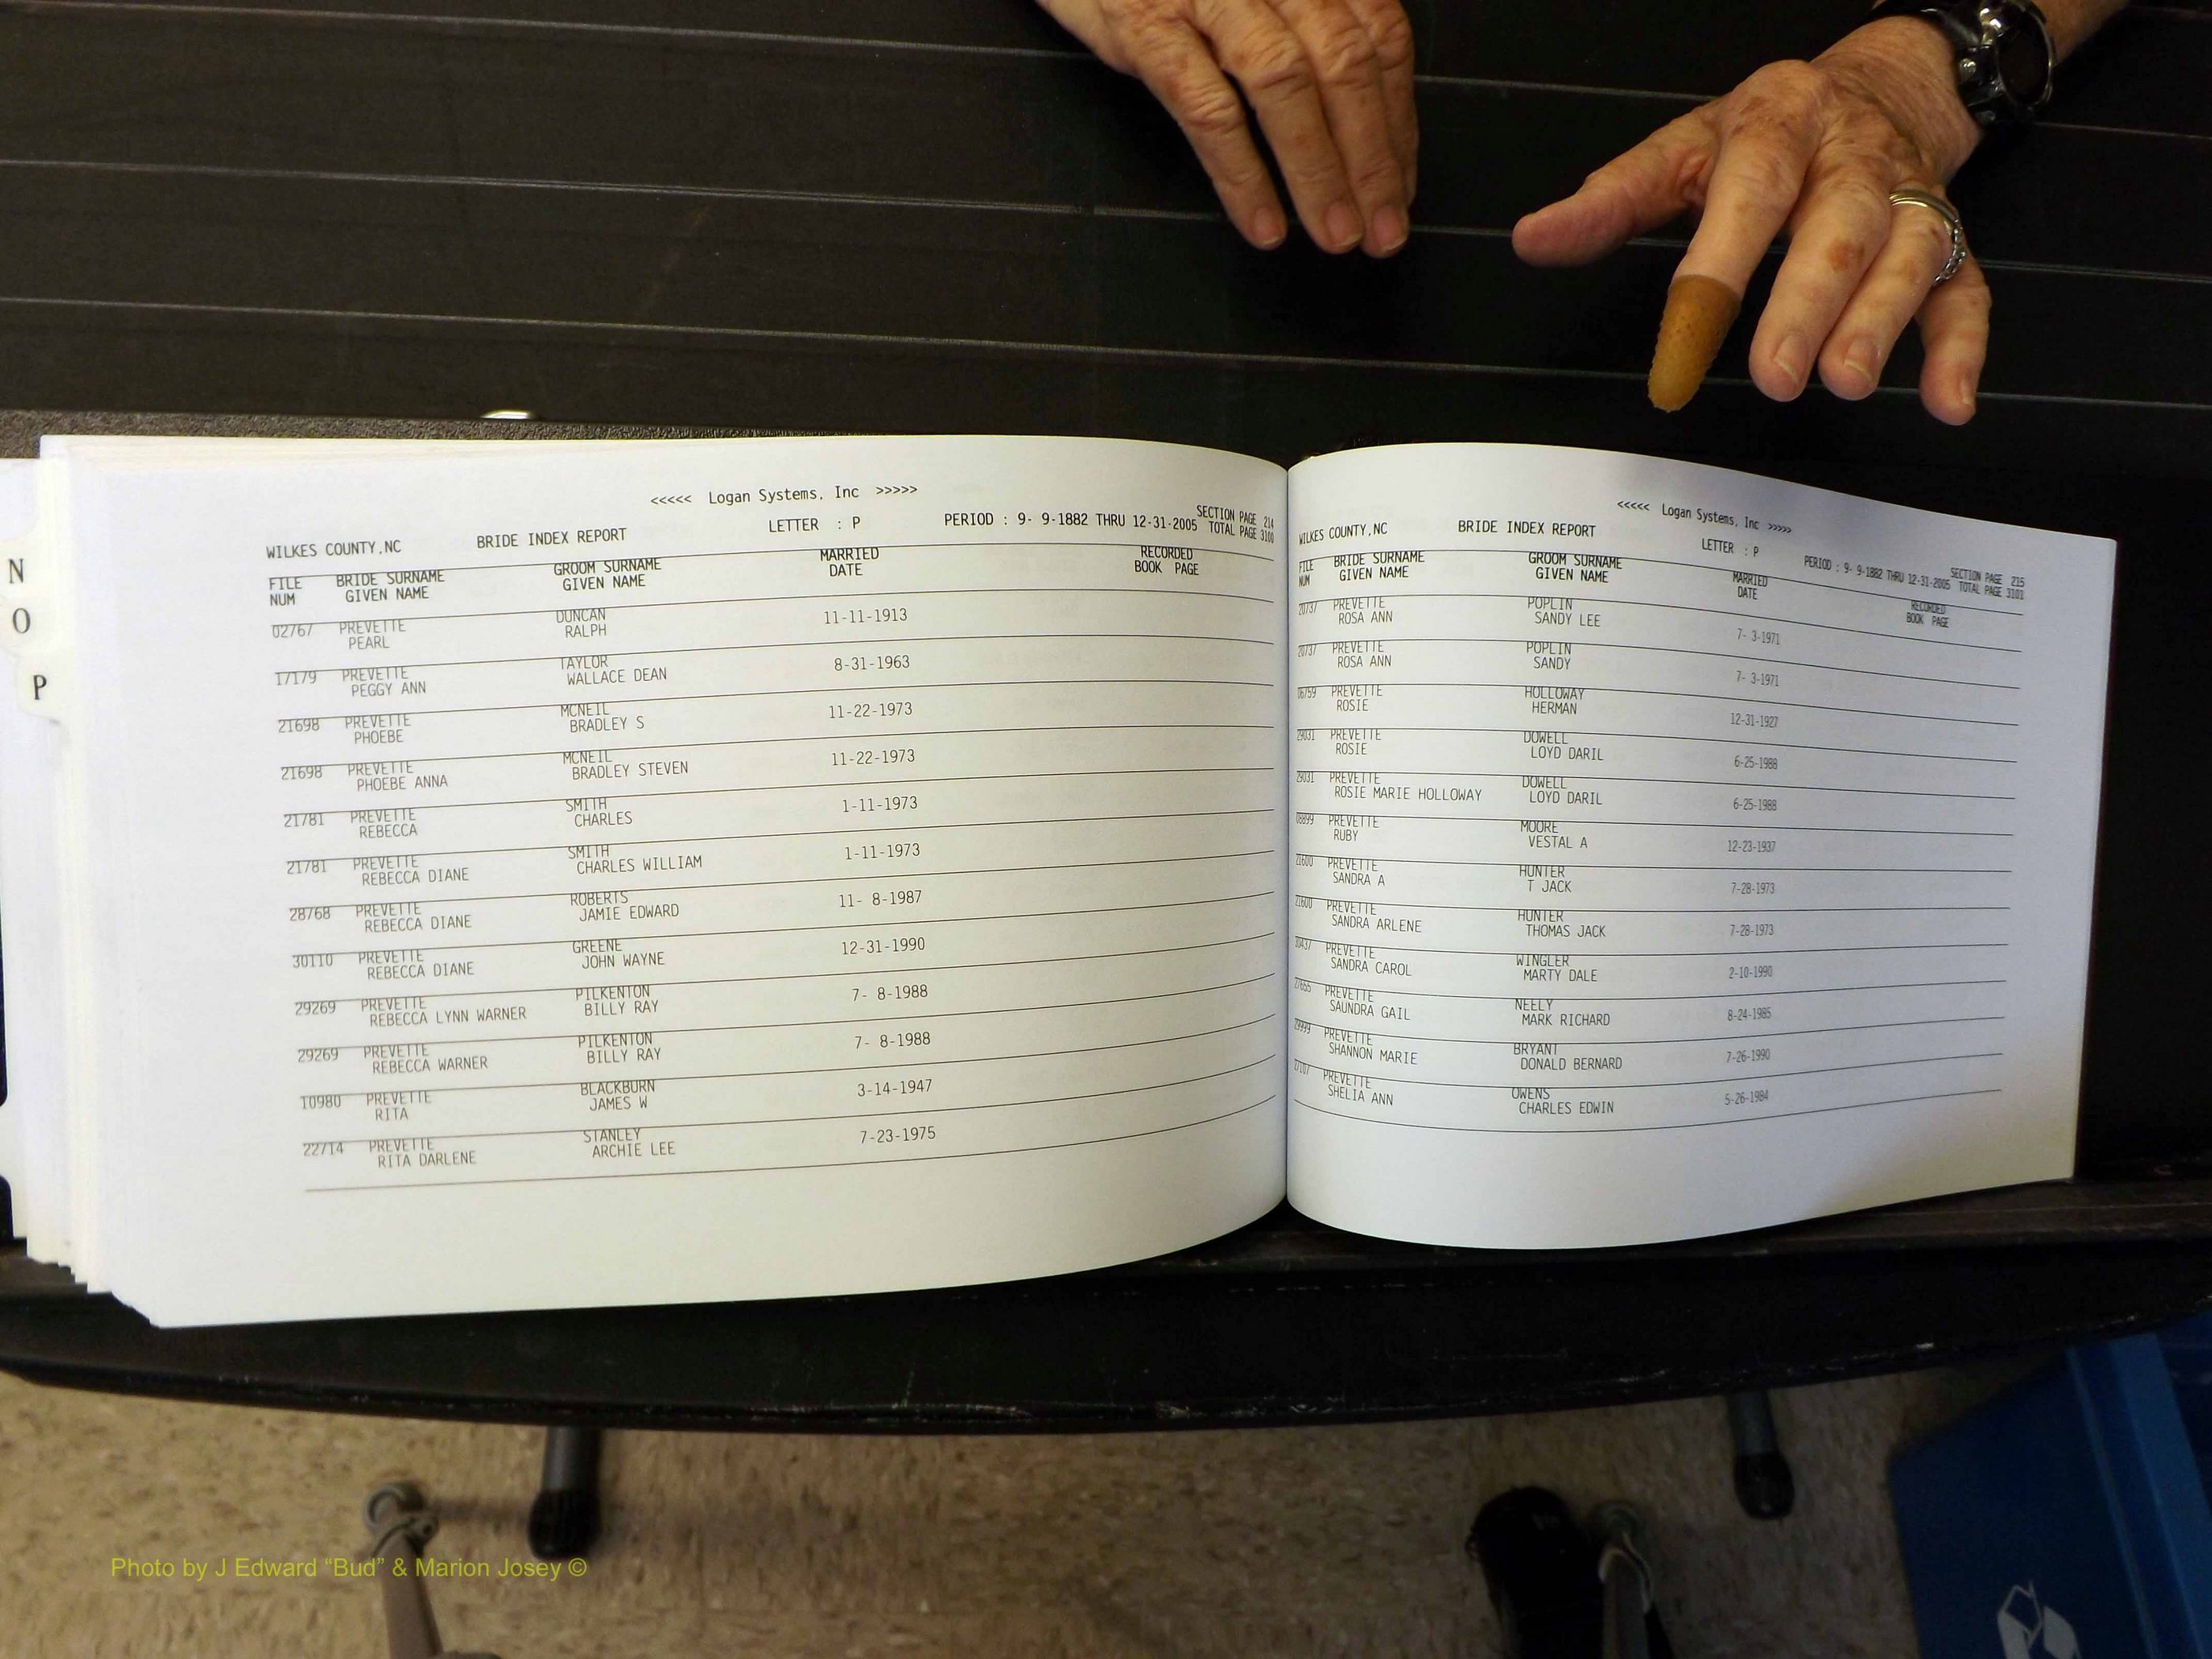 N
O
P
<<<<< Logan Systems, Inc >>>>>
WILKES COUNTY,NC BRIDE INDEX REPORT LETTER : P PERIOD : 9- 9-1882 THRU 12-31-2005 SECTION PAGE 214
TOTAL PAGE 3100
FILE BRIDE SURNAME GROOM SURNAME MARRIED RECORDED
NUM GIVEN NAME GIVEN NAME DATE BOOK PAGE
02767 PREVETTE DUNCAN 11-11-1913
PEARL RALPH
17179 PREVETTE TAYLOR 8-31-1963
PEGGY ANN WALLACE DEAN
21698 PREVETTE MCNEIL 11-22-1973
PHOEBE BRADLEY S
21698 PREVETTE MCNEIL 11-22-1973
PHOEBE ANNA BRADLEY STEVEN
21781 PREVETTE SMITH 1-11-1973
REBECCA CHARLES
21781 PREVETTE SMITH 1-11-1973
REBECCA DIANE CHARLES WILLIAM
28768 PREVETTE ROBERTS 11- 8-1987
REBECCA DIANE JAMIE EDWARD
30110 PREVETTE GREENE 12-31-1990
REBECCA DIANE JOHN WAYNE
29269 PREVETTE PILKENTON 7- 8-1988
REBECCA LYNN WARNER BILLY RAY
29269 PREVETTE PILKENTON 7- 8-1988
REBECCA WARNER BILLY RAY
10980 PREVETTE BLACKBURN 3-14-1947
RITA JAMES W
22714 PREVETTE STANLEY 7-23-1975
RITA DARLENE ARCHIE LEE
<<<<< Logan Systems, Inc >>>>>
WILKES COUNTY,NC BRIDE INDEX REPORT LETTER : P PERIOD : 9- 9-1882 THRU 12-31-2005 SECTION PAGE 215
TOTAL PAGE 3101
FILE BRIDE SURNAME GROOM SURNAME MARRIED RECORDED
NUM GIVEN NAME GIVEN NAME DATE BOOK PAGE
20737 PREVETTE POPLIN 7- 3-1971
ROSA ANN SANDY LEE
20737 PREVETTE POPLIN 7- 3-1971
ROSA ANN SANDY
06759 PREVETTE HOLLOWAY 12-31-1927
ROSIE HERMAN
29031 PREVETTE DOWELL 6-25-1988
ROSIE LOYD DARIL
29031 PREVETTE DOWELL 6-25-1988
ROSIE MARIE HOLLOWAY LOYD DARIL
08899 PREVETTE MOORE 12-23-1937
RUBY VESTAL A
21600 PREVETTE HUNTER 7-28-1973
SANDRA A T JACK
21600 PREVETTE HUNTER 7-28-1973
SANDRA ARLENE THOMAS JACK
PREVETTE WINGLER 2-10-1990
SANDRA CAROL MARTY DALE
27655 PREVETTE NEELY 8-24-1985
SAUNDRA GAIL MARK RICHARD
29999 PREVETTE BRYANT 7-26-1990
SHANNON MARIE DONALD BERNARD
PREVETTE OWENS 5-26-1984
SHELIA ANN CHARLES EDWIN
Photo by J Edward “Bud” & Marion Josey ©